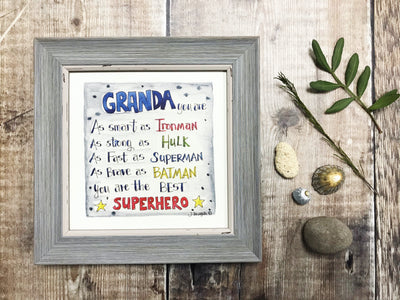 GRANDA you are
As smart as Ironman
As strong as HULK
As Fast as SUPERMAN
As Brave as BATMAN
You are the BEST
SUPERHERO